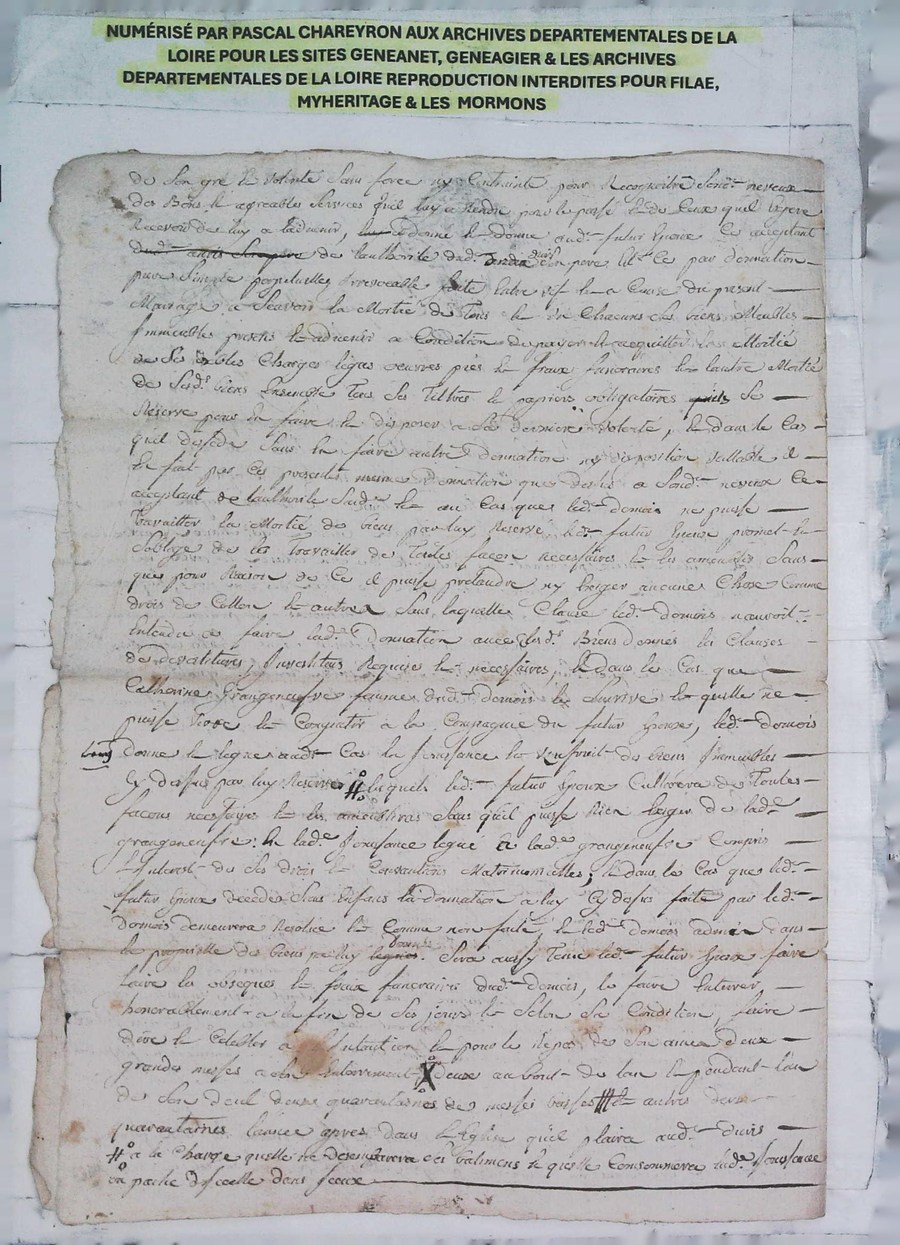 NUMÉRISÉ PAR PASCAL CHAREYRON AUX ARCHIVES DEPARTEMENTALES DE LA
LOIRE POUR LES SITES GENEANET, GENEAGIER & LES ARCHIVES
DEPARTEMENTALES DE LA LOIRE REPRODUCTION INTERDITES POUR FILAE,
MYHERITAGE & LES MORMONS
de son gré & volonté sans force ny contrainte pour recognoitre neveux
des bons & agreables services quil luy a rendu pour le passé & de ceux quil espere
recevoir de luy a ladvenir, a donné & donne aud. futur epoux ce acceptant
de lauthorité dud. son pere par donnation
pure simple perpetuelle irrevocable faite entre vif & a cause du present
mariage a scavoir la moitié de tous & un chacuns ses biens meubles
immeubles presents & advenir a condition de payer & acquitter la moitié
de ses debtes charges legas oeuvres pies & fraux funeraires & lautre moitié
de sesd. biens ensemble tous ses tiltres & papiers obligatoires se
reserve pour en faire & disposer a sa derniere volonté, & dans le cas
quil decede sans en faire autre donnation ny disposition vallable il
en fait par ces presentes meme donnation que dessus a sond. neveux ce
acceptant de lauthorité & au cas que led. domois ne puisse
travailler la moitié des biens par luy reservé led. futur epoux promet &
soblige de les travailler de toutes facon necessaires & les sans
que pour raison de ce il puisse pretandre ny exiger aucune chose comme
droit de collon & autre sans laquelle clause led. domois nauroit
entendu faire lad. donnation avec lesd. biens donnés les clauses
de devestitures, investitures requise & necessaires, & dans le cas que
Catherine Grangeneufve femme dud. domois le survive & quelle ne
puisse vivre & la compagnie du futur epoux, led. domois
donne & legue aud. cas la jouissance & usufruit des biens immeubles
cy dessus par luy reservé # lesquels led. futur epoux cultivera de toutes
facons necessaires & les sans quil puisse rien exiger de lad.
grangeneufve, & lad. jouissance legué a lad. grangeneufve compris
linterest de ses droits & matrimonialles; & dans le cas que led.
futur epoux decede sans enfans la donnation a luy cy dessus faite par led.
domois demeurera resolue & comme non faite, & led. domois dans
la proprietté des biens par luy donnés. sera aussy tenu led. futur epoux faire
faire les obseques & fraux funeraires dud. domois, le faire enterrer,
honorablement a la fin de ses jours & selon sa condition, faire
dire & celebrer a lintention & pour le repos de son ame deux
grandes messes a son enterrement X deux au bout de lan & pendant lan
de son deuil deux quarantaines de messes basses # & autres deux
quarantaines lannée apres dans leglise quil plaira aud.
# a la charge quelle ne desemparera les batimens & quelle consommera lad. jouissance
ou partie dicelle dans iceux